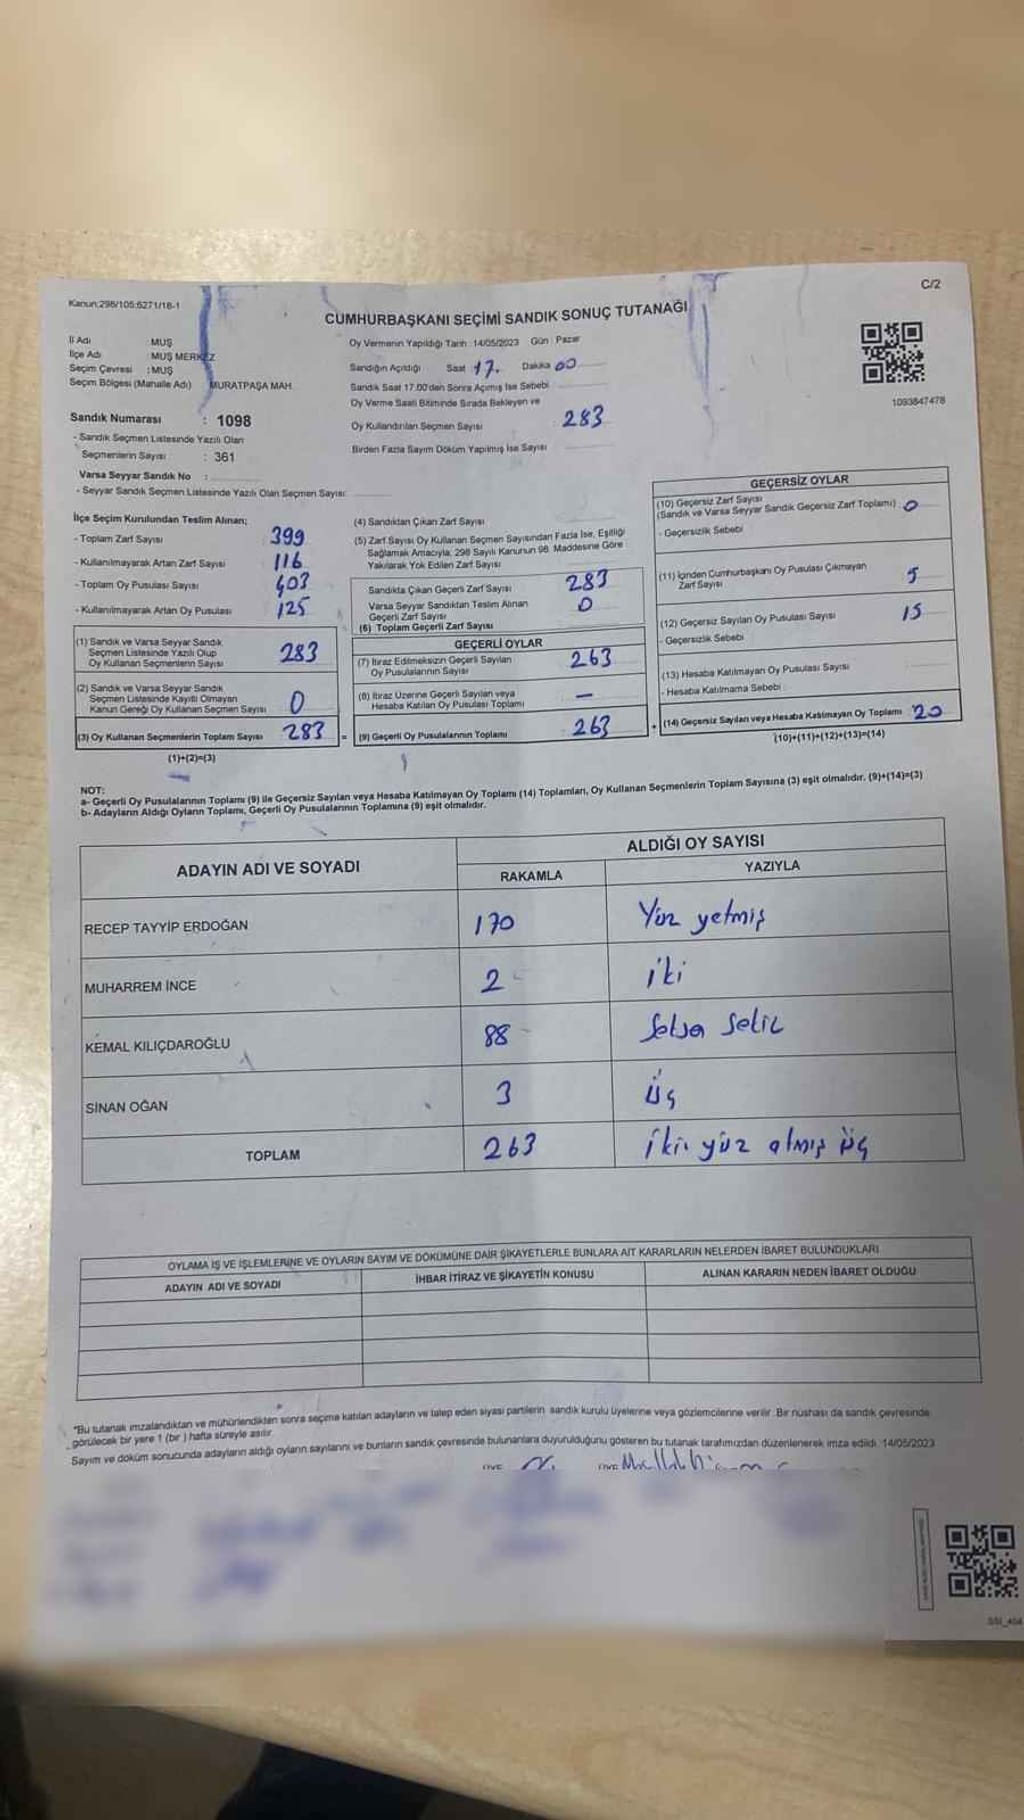 Kanun:298/105:6271/18-1
C/2
CUMHURBAŞKANI SEÇİMİ SANDIK SONUÇ TUTANAĞI
İl Adı : MUŞ
İlçe Adı : MUŞ MERKEZ
Seçim Çevresi : MUŞ
Seçim Bölgesi (Mahalle Adı) MURATPAŞA MAH.
Sandık Numarası : 1098
- Sandık Seçmen Listesinde Yazılı Olan
Seçmenlerin Sayısı : 361
Varsa Seyyar Sandık No :
- Seyyar Sandık Seçmen Listesinde Yazılı Olan Seçmen Sayısı:
Oy Vermenin Yapıldığı Tarih : 14/05/2023 Gün : Pazar
Sandığın Açıldığı Saat 17. Dakika 00
Sandık Saat 17.00'den Sonra Açılmış İse Sebebi
Oy Verme Saati Bitiminde Sırada Bekleyen ve
Oy Kullandırılan Seçmen Sayısı 283
Birden Fazla Sayım Döküm Yapılmış İse Sayısı
1093847478
İlçe Seçim Kurulundan Teslim Alınan;
- Toplam Zarf Sayısı 399
- Kullanılmayarak Artan Zarf Sayısı 116
- Toplam Oy Pusulası Sayısı 403
- Kullanılmayarak Artan Oy Pusulası 125
(1) Sandık ve Varsa Seyyar Sandık
Seçmen Listesinde Yazılı Olup
Oy Kullanan Seçmenlerin Sayısı 283
(2) Sandık ve Varsa Seyyar Sandık
Seçmen Listesinde Kayıtlı Olmayan
Kanun Gereği Oy Kullanan Seçmen Sayısı 0
(3) Oy Kullanan Seçmenlerin Toplam Sayısı 283 =
(1)+(2)=(3)
(4) Sandıktan Çıkan Zarf Sayısı
(5) Zarf Sayısı Oy Kullanan Seçmen Sayısından Fazla İse, Eşitliği
Sağlamak Amacıyla; 298 Sayılı Kanunun 98. Maddesine Göre
Yakılarak Yok Edilen Zarf Sayısı
Sandıkta Çıkan Geçerli Zarf Sayısı 283
Varsa Seyyar Sandıktan Teslim Alınan
Geçerli Zarf Sayısı 0
(6) Toplam Geçerli Zarf Sayısı
GEÇERLİ OYLAR
(7) İtiraz Edilmeksizin Geçerli Sayılan
Oy Pusulalarının Sayısı 263
(8) İtiraz Üzerine Geçerli Sayılan veya
Hesaba Katılan Oy Pusulası Toplamı —
(9) Geçerli Oy Pusulalarının Toplamı 263 +
GEÇERSİZ OYLAR
(10) Geçersiz Zarf Sayısı
(Sandık ve Varsa Seyyar Sandık Geçersiz Zarf Toplamı) 0
- Geçersizlik Sebebi
(11) İçinden Cumhurbaşkanı Oy Pusulası Çıkmayan
Zarf Sayısı 5
(12) Geçersiz Sayılan Oy Pusulası Sayısı 15
- Geçersizlik Sebebi
(13) Hesaba Katılmayan Oy Pusulası Sayısı
- Hesaba Katılmama Sebebi
(14) Geçersiz Sayılan veya Hesaba Katılmayan Oy Toplamı 20
(10)+(11)+(12)+(13)=(14)
NOT:
a- Geçerli Oy Pusulalarının Toplamı (9) ile Geçersiz Sayılan veya Hesaba Katılmayan Oy Toplamı (14) Toplamları, Oy Kullanan Seçmenlerin Toplam Sayısına (3) eşit olmalıdır. (9)+(14)=(3)
b- Adayların Aldığı Oyların Toplamı, Geçerli Oy Pusulalarının Toplamına (9) eşit olmalıdır.
ADAYIN ADI VE SOYADI ALDIĞI OY SAYISI
RAKAMLA YAZIYLA
RECEP TAYYİP ERDOĞAN 170 Yüz yetmiş
MUHARREM İNCE 2 iki
KEMAL KILIÇDAROĞLU 88
SİNAN OĞAN 3 üç
TOPLAM 263 iki yüz atmış üç
OYLAMA İŞ VE İŞLEMLERİNE VE OYLARIN SAYIM VE DÖKÜMÜNE DAİR ŞİKAYETLERLE BUNLARA AİT KARARLARIN NELERDEN İBARET BULUNDUKLARI
ADAYIN ADI VE SOYADI İHBAR İTİRAZ VE ŞİKAYETİN KONUSU ALINAN KARARIN NEDEN İBARET OLDUĞU
*Bu tutanak imzalandıktan ve mühürlendikten sonra seçime katılan adayların ve talep eden siyasi partilerin sandık kurulu üyelerine veya gözlemcilerine verilir. Bir nüshası da sandık çevresinde
görülecek bir yere 1 (bir ) hafta süreyle asılır.
Sayım ve döküm sonucunda adayların aldığı oyların sayılarını ve bunların sandık çevresinde bulunanlara duyurulduğunu gösteren bu tutanak tarafımızdan düzenlenerek imza edildi. 14/05/2023